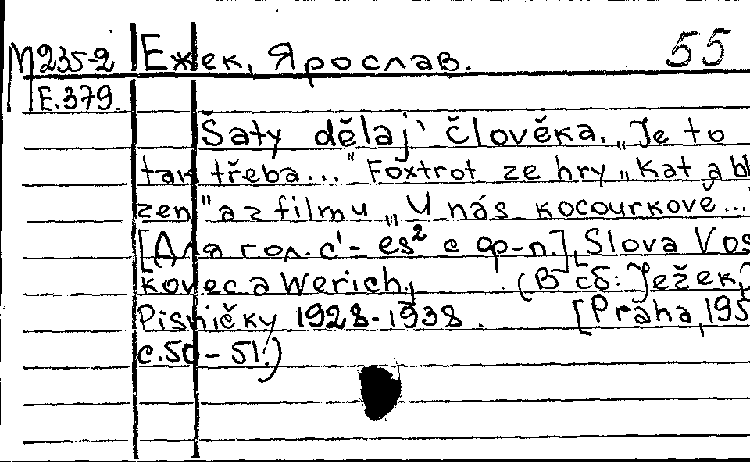 М235-2 Ежек, Ярослав. 55
Е.379.
Šaty dělaj' člověka. „Je to
tak třeba..." Foxtrot ze hry „Kat a bl
zen" a z filmu „U nás kocourkově...
[Для гол. c¹- es² с ф-п.], Slova Vos
kovec a Werich, (В сб: Ježek,
Pisničky 1928-1938. [Praha, 195
с.50-51.)